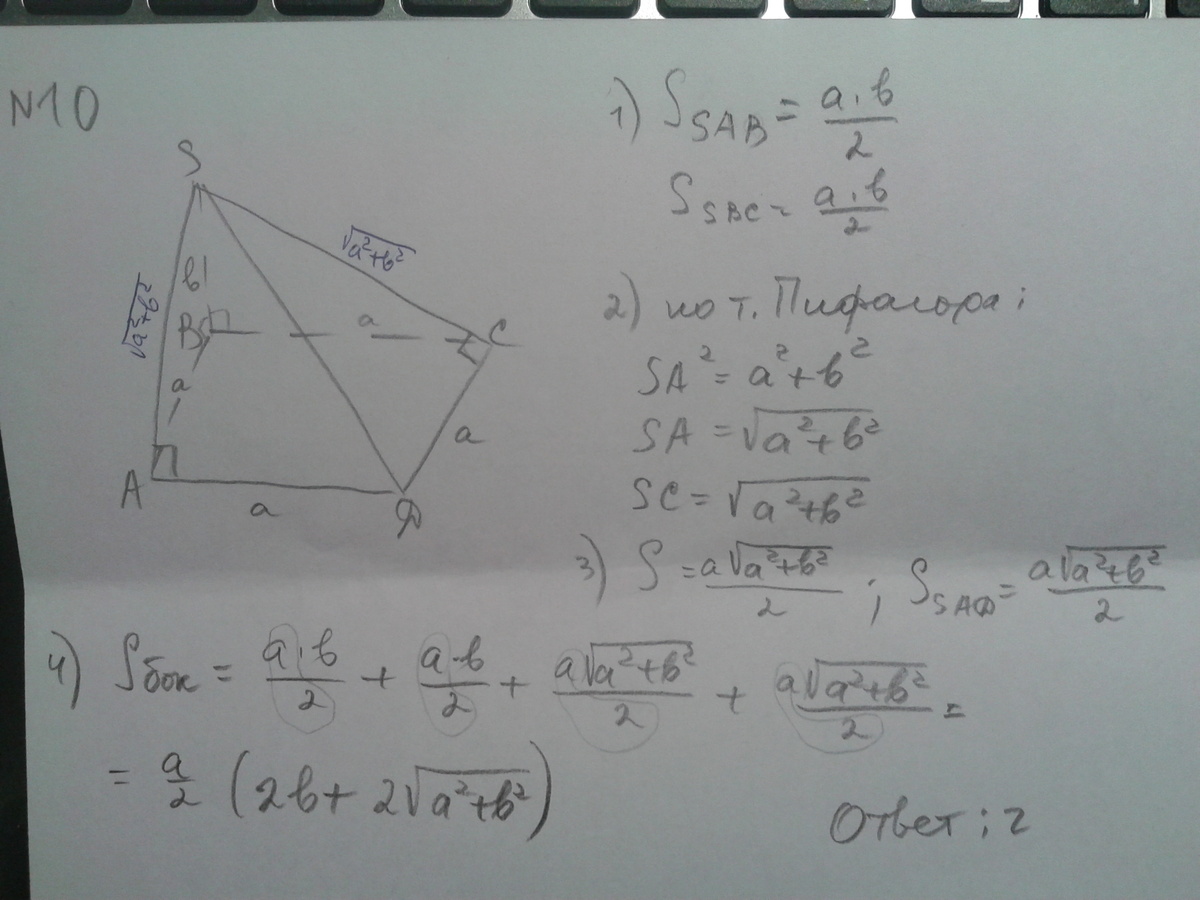 N10
S
√a²+b²
√a²+b²
b
B
a
C
a
a
A
a
D
1) S SAB = a·b/2
S SBC = a·b/2
2) по т. Пифагора:
SA² = a²+b²
SA = √a²+b²
SC = √a²+b²
3) S = a√a²+b²/2 ; S SAD = a√a²+b²/2
4) S бок = a·b/2 + a·b/2 + a√a²+b²/2 + a√a²+b²/2 =
= a/2 (2b + 2√a²+b²)
Ответ: 2